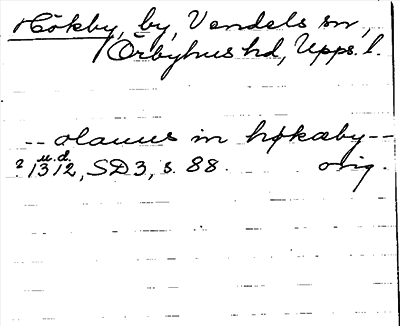 Hökby, by, Vendels sn,
Örbyhus hd, Upps. l.
-- olauus in høkaby --
u. d.
? 1312, SD3, s. 88. orig.